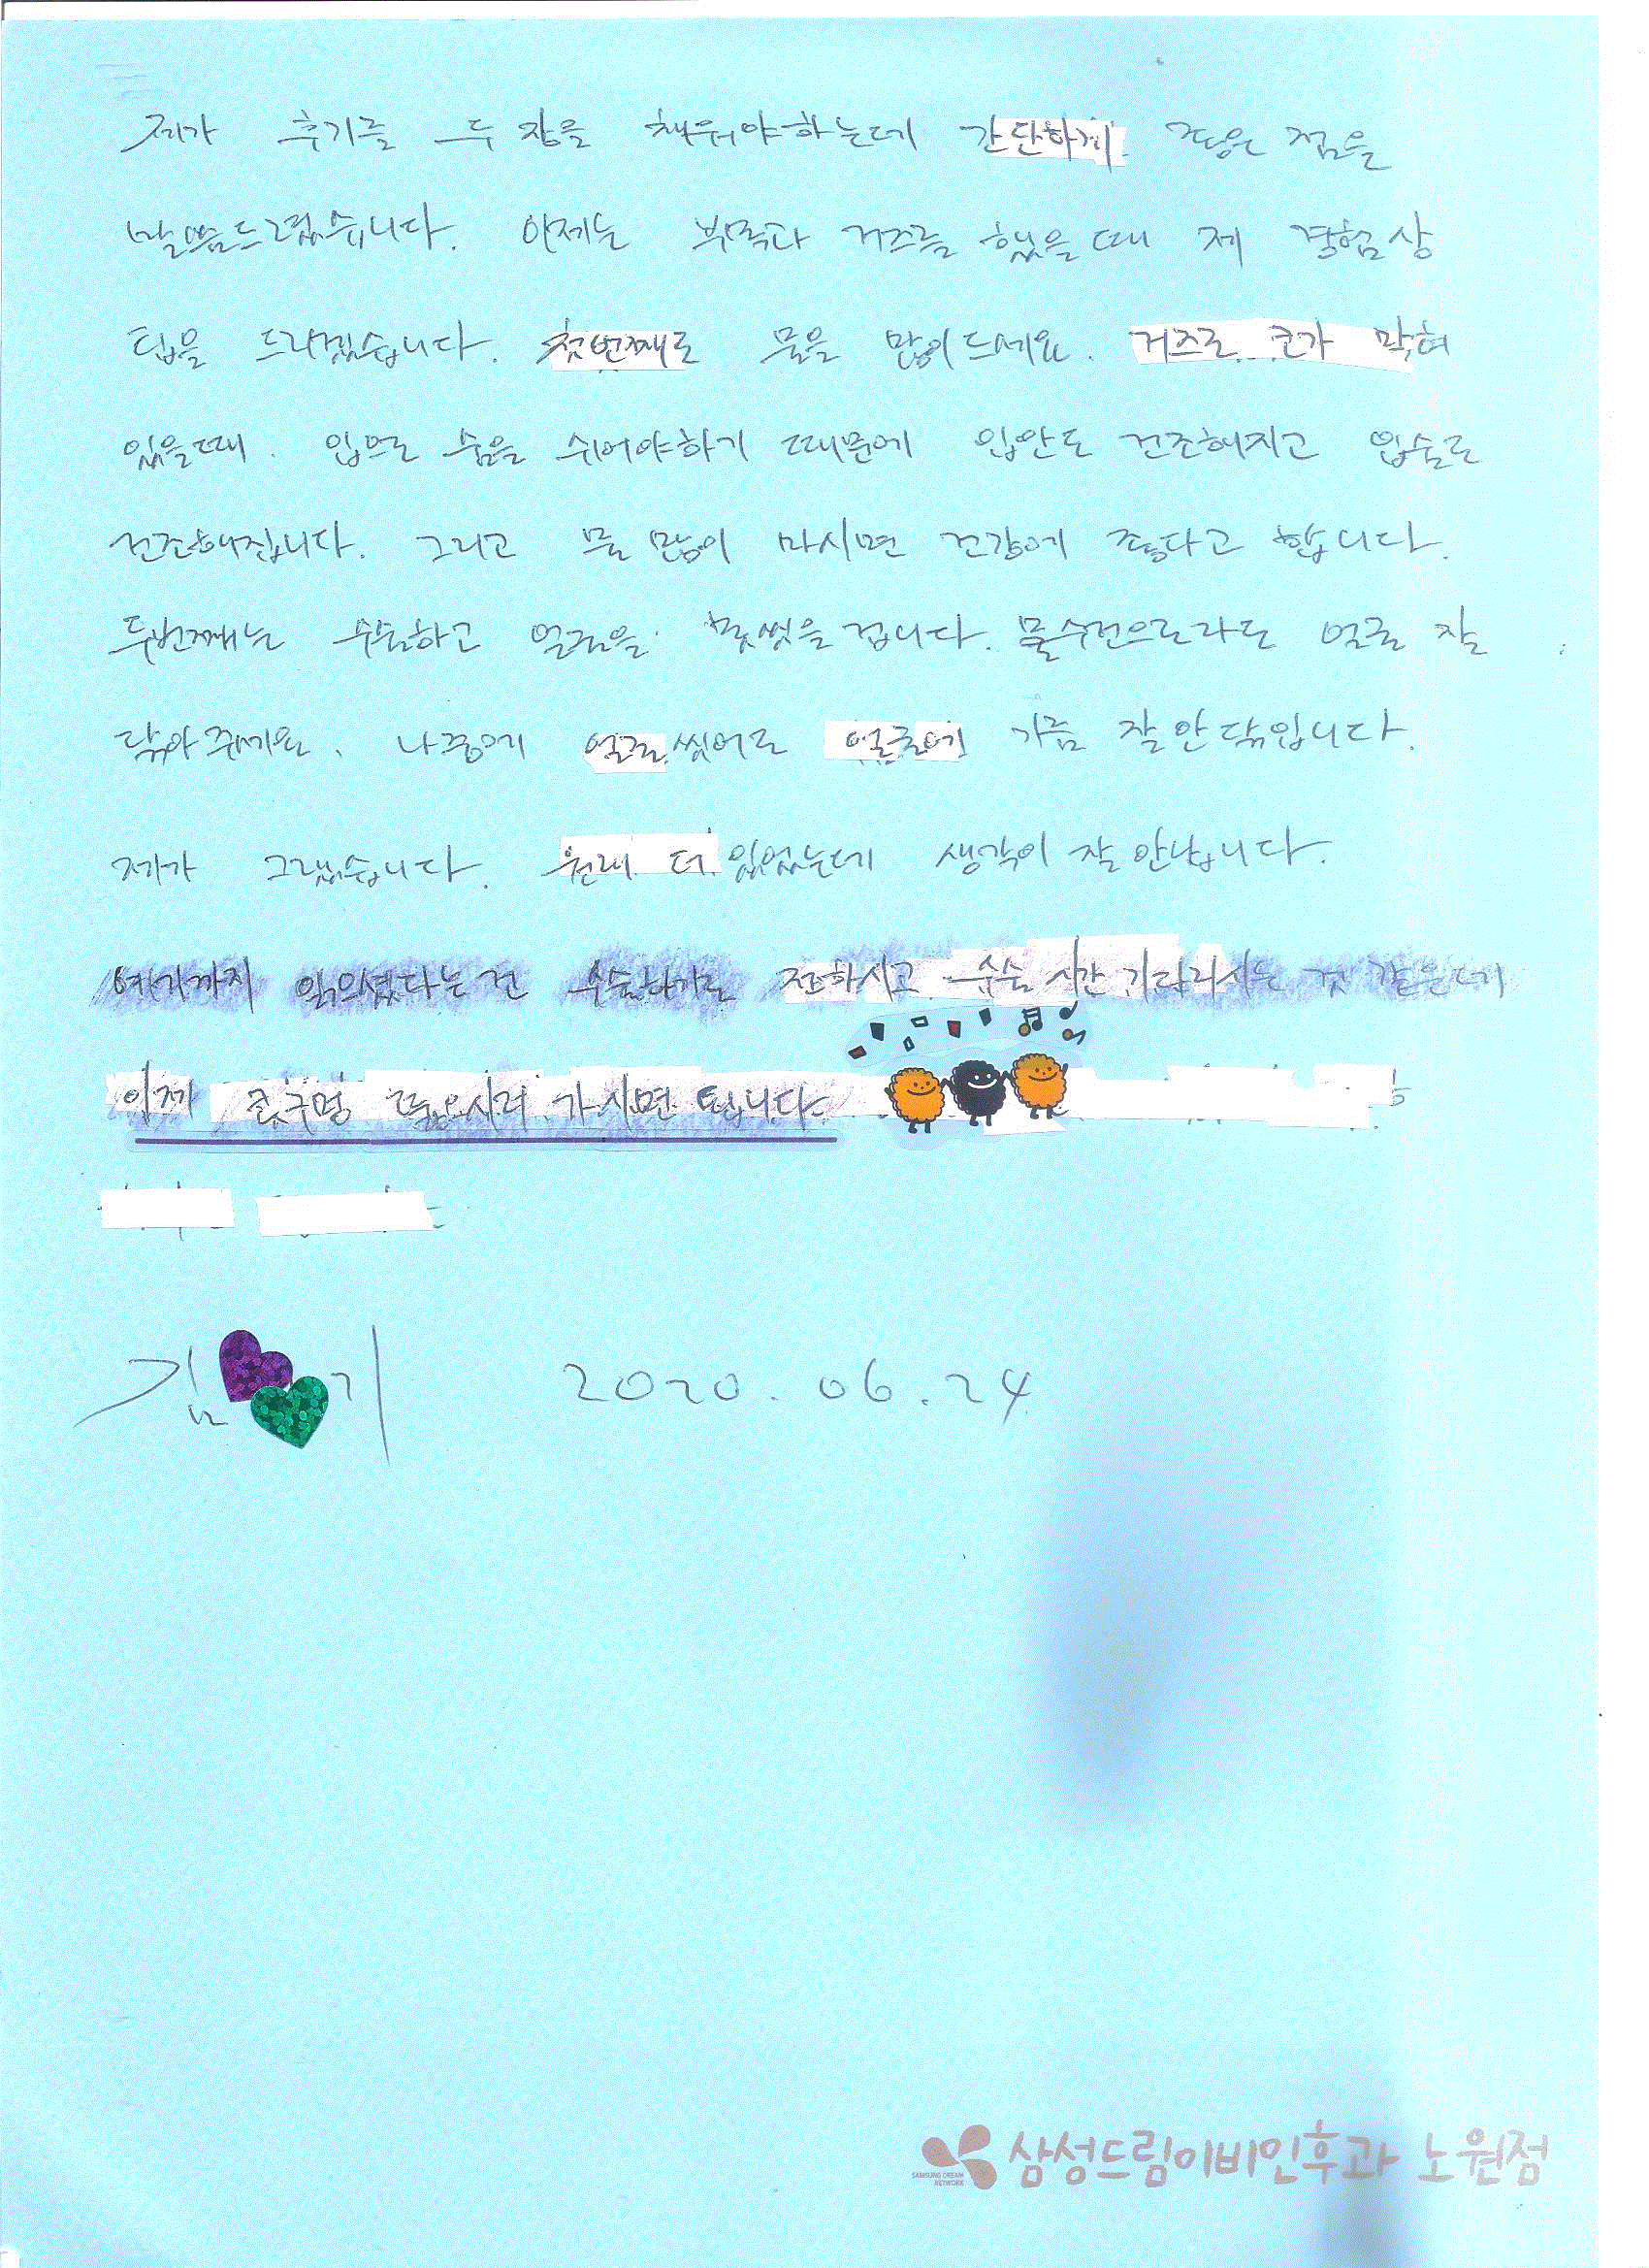 제가 후기를 두 장을 채워야하는데 간단하게 좋은 점을
말씀드렸습니다. 이제는 부목과 거즈를 했을때 제 경험상
팁을 드리겠습니다. 첫번째로 물을 많이드세요. 거즈로 코가 막혀
있을때. 입으로 숨을 쉬어야하기 때문에 입안도 건조해지고 입술도
건조해집니다. 그리고 물 많이 마시면 건강에 좋다고 합니다.
두번째는 수술하고 얼굴을 못씻을겁니다. 물수건으로라도 얼굴 잘
닦아주세요. 나중에 얼굴씻어도 얼굴에 기름 잘안닦입니다.
제가 그랬습니다. 원래 더 있었는데 생각이 잘 안납니다.
여기까지 읽으셨다는건 수술하기로 전하시고 수술 시간 기다리시는 것 같은데
이제 콧구멍 뚫으시러 가시면 됩니다.
김 기 2020.06.24
SAMSUNG DREAM NETWORK 삼성드림이비인후과 노원점